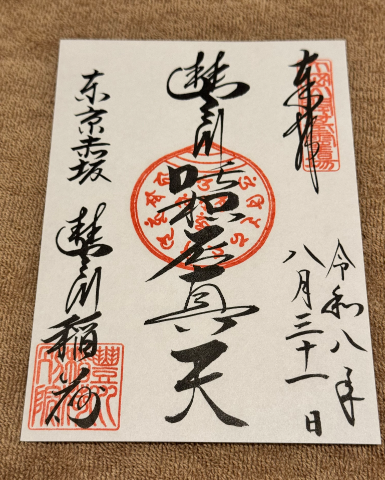 奉拝
令和八年
八月三十一日
豐川
吒枳尼真天
東京赤坂
豐川稲荷